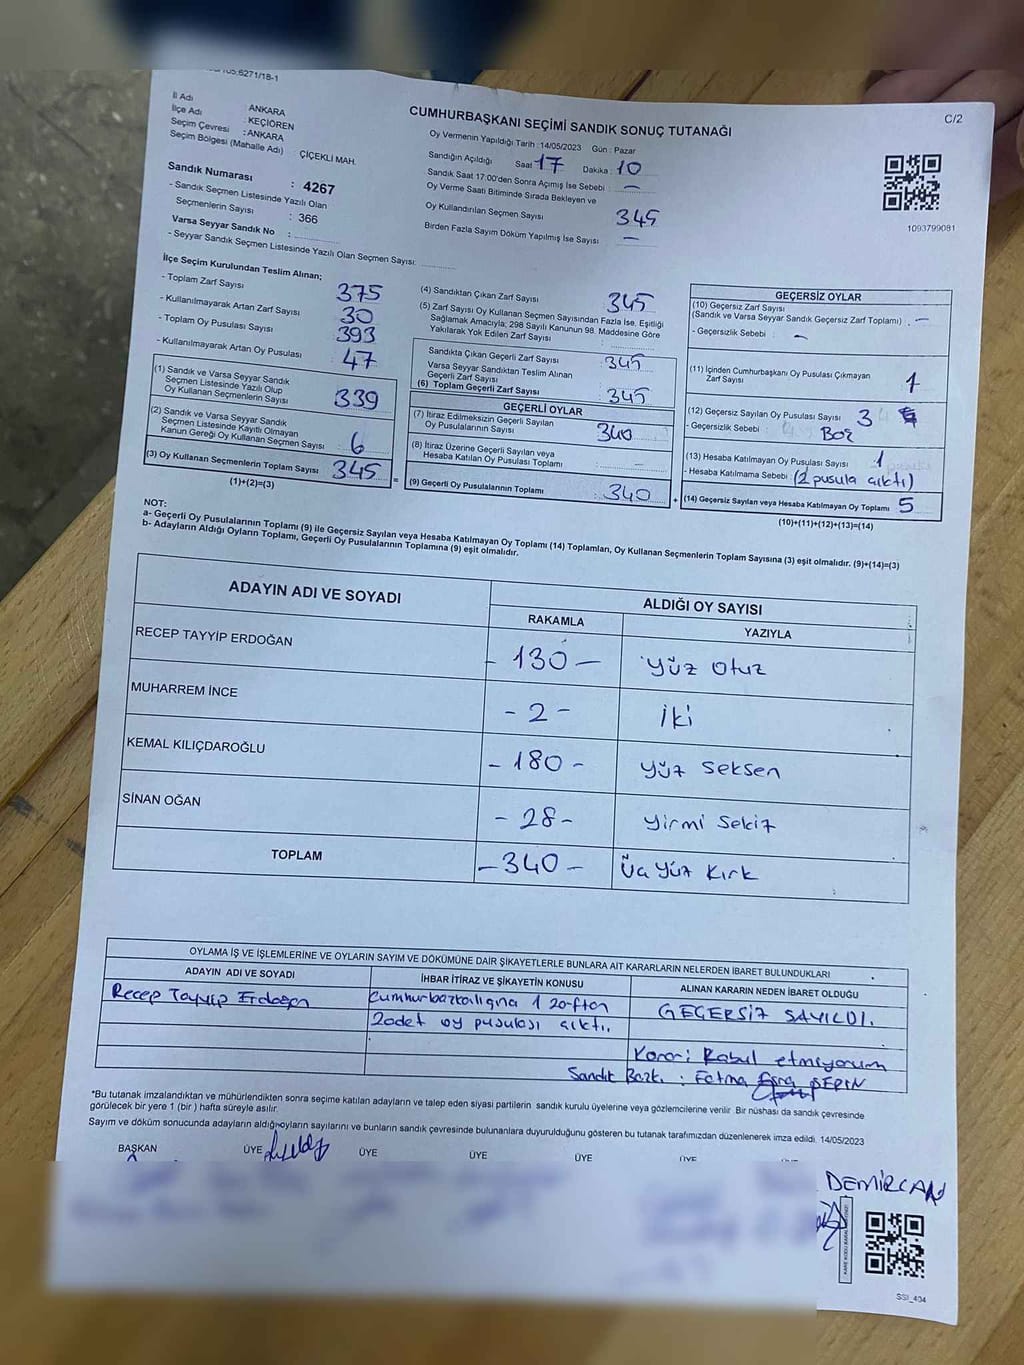 6271/18-1
C/2
İl Adı : ANKARA
İlçe Adı : KEÇİÖREN
Seçim Çevresi : ANKARA
Seçim Bölgesi (Mahalle Adı) ÇİÇEKLİ MAH.
Sandık Numarası : 4267
- Sandık Seçmen Listesinde Yazılı Olan
Seçmenlerin Sayısı : 366
Varsa Seyyar Sandık No :
- Seyyar Sandık Seçmen Listesinde Yazılı Olan Seçmen Sayısı:
CUMHURBAŞKANI SEÇİMİ SANDIK SONUÇ TUTANAĞI
Oy Vermenin Yapıldığı Tarih : 14/05/2023 Gün : Pazar
Sandığın Açıldığı Saat 17 Dakika : 10
Sandık Saat 17:00'den Sonra Açımış İse Sebebi : –
Oy Verme Saati Bitiminde Sırada Bekleyen ve
Oy Kullandırılan Seçmen Sayısı 345
Birden Fazla Sayım Döküm Yapılmış İse Sayısı –
1093799081
İlçe Seçim Kurulundan Teslim Alınan;
- Toplam Zarf Sayısı 375
- Kullanılmayarak Artan Zarf Sayısı 30
- Toplam Oy Pusulası Sayısı 393
- Kullanılmayarak Artan Oy Pusulası 47
(1) Sandık ve Varsa Seyyar Sandık
Seçmen Listesinde Yazılı Olup
Oy Kullanan Seçmenlerin Sayısı 339
(2) Sandık ve Varsa Seyyar Sandık
Seçmen Listesinde Kayıtlı Olmayan
Kanun Gereği Oy Kullanan Seçmen Sayısı : 6
(3) Oy Kullanan Seçmenlerin Toplam Sayısı 345
(1)+(2)=(3)
(4) Sandıktan Çıkan Zarf Sayısı 345
(5) Zarf Sayısı Oy Kullanan Seçmen Sayısından Fazla İse, Eşitliği
Sağlamak Amacıyla; 298 Sayılı Kanunun 98. Maddesine Göre
Yakılarak Yok Edilen Zarf Sayısı :
Sandıkta Çıkan Geçerli Zarf Sayısı : 345
Varsa Seyyar Sandıktan Teslim Alınan
Geçerli Zarf Sayısı
(6) Toplam Geçerli Zarf Sayısı 345
GEÇERLİ OYLAR
(7) İtiraz Edilmeksizin Geçerli Sayılan
Oy Pusulalarının Sayısı 340
(8) İtiraz Üzerine Geçerli Sayılan veya
Hesaba Katılan Oy Pusulası Toplamı : –
(9) Geçerli Oy Pusulalarının Toplamı : 340
=
+
GEÇERSİZ OYLAR
(10) Geçersiz Zarf Sayısı
(Sandık ve Varsa Seyyar Sandık Geçersiz Zarf Toplamı) : –
- Geçersizlik Sebebi : –
(11) İçinden Cumhurbaşkanı Oy Pusulası Çıkmayan
Zarf Sayısı 1
(12) Geçersiz Sayılan Oy Pusulası Sayısı 3
- Geçersizlik Sebebi : Boş
(13) Hesaba Katılmayan Oy Pusulası Sayısı 1
- Hesaba Katılmama Sebebi (2 pusula çıktı)
(14) Geçersiz Sayılan veya Hesaba Katılmayan Oy Toplamı 5
(10)+(11)+(12)+(13)=(14)
NOT:
a- Geçerli Oy Pusulalarının Toplamı (9) ile Geçersiz Sayılan veya Hesaba Katılmayan Oy Toplamı (14) Toplamları, Oy Kullanan Seçmenlerin Toplam Sayısına (3) eşit olmalıdır. (9)+(14)=(3)
b- Adayların Aldığı Oyların Toplamı, Geçerli Oy Pusulalarının Toplamına (9) eşit olmalıdır.
ADAYIN ADI VE SOYADI ALDIĞI OY SAYISI
RAKAMLA YAZIYLA
RECEP TAYYİP ERDOĞAN - 130 - Yüz Otuz
MUHARREM İNCE - 2 - İki
KEMAL KILIÇDAROĞLU - 180 - Yüz seksen
SİNAN OĞAN - 28 - Yirmi Sekiz
TOPLAM - 340 - Üç Yüz Kırk
OYLAMA İŞ VE İŞLEMLERİNE VE OYLARIN SAYIM VE DÖKÜMÜNE DAİR ŞİKAYETLERLE BUNLARA AİT KARARLARIN NELERDEN İBARET BULUNDUKLARI
ADAYIN ADI VE SOYADI İHBAR İTİRAZ VE ŞİKAYETİN KONUSU ALINAN KARARIN NEDEN İBARET OLDUĞU
Recep Tayyip Erdoğan Cumhurbaşkalığına 1 zarftan GEÇERSİZ SAYILDI.
2 adet oy pusulası çıktı.
Kararı Kabul etmiyorum
Sandık Başk. : Fatma Esra
*Bu tutanak imzalandıktan ve mühürlendikten sonra seçime katılan adayların ve talep eden siyasi partilerin sandık kurulu üyelerine veya gözlemcilerine verilir. Bir nüshası da sandık çevresinde
görülecek bir yere 1 (bir) hafta süreyle asılır.
Sayım ve döküm sonucunda adayların aldığı oyların sayılarını ve bunların sandık çevresinde bulunanlara duyurulduğunu gösteren bu tutanak tarafımızdan düzenlenerek imza edildi. 14/05/2023
BAŞKAN ÜYE ÜYE ÜYE ÜYE ÜYE
DEMİRCAN
SSI_404